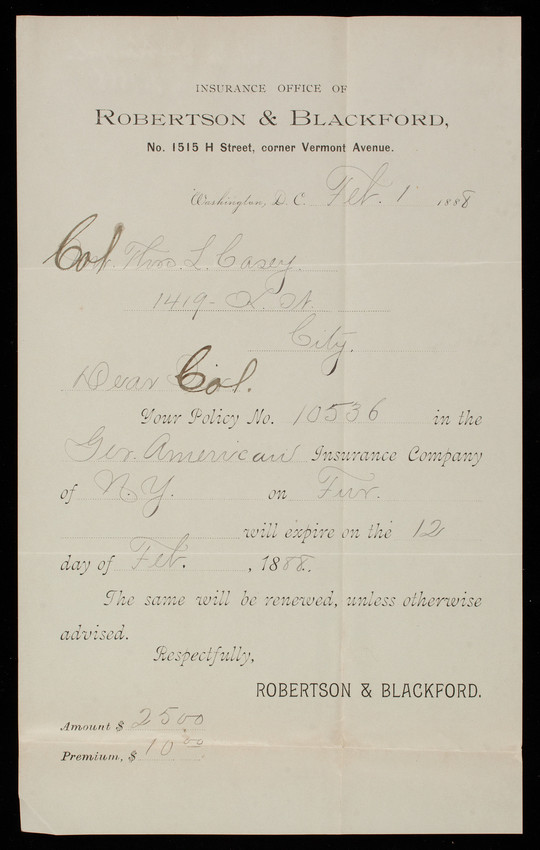 INSURANCE OFFICE OF
ROBERTSON & BLACKFORD,
No. 1515 H Street, corner Vermont Avenue.
Washington, D. C. Feb. 1 1888
Col. Thos. L. Casey.
1419 - K. St.
City.
Dear Col.
Your Policy No. 10536 in the
Ger. American Insurance Company
of N.Y. on Fur.
will expire on the 12
day of Feb. , 1888.
The same will be renewed, unless otherwise
advised.
Respectfully,
ROBERTSON & BLACKFORD.
Amount $ 2500
Premium, $ 10.00